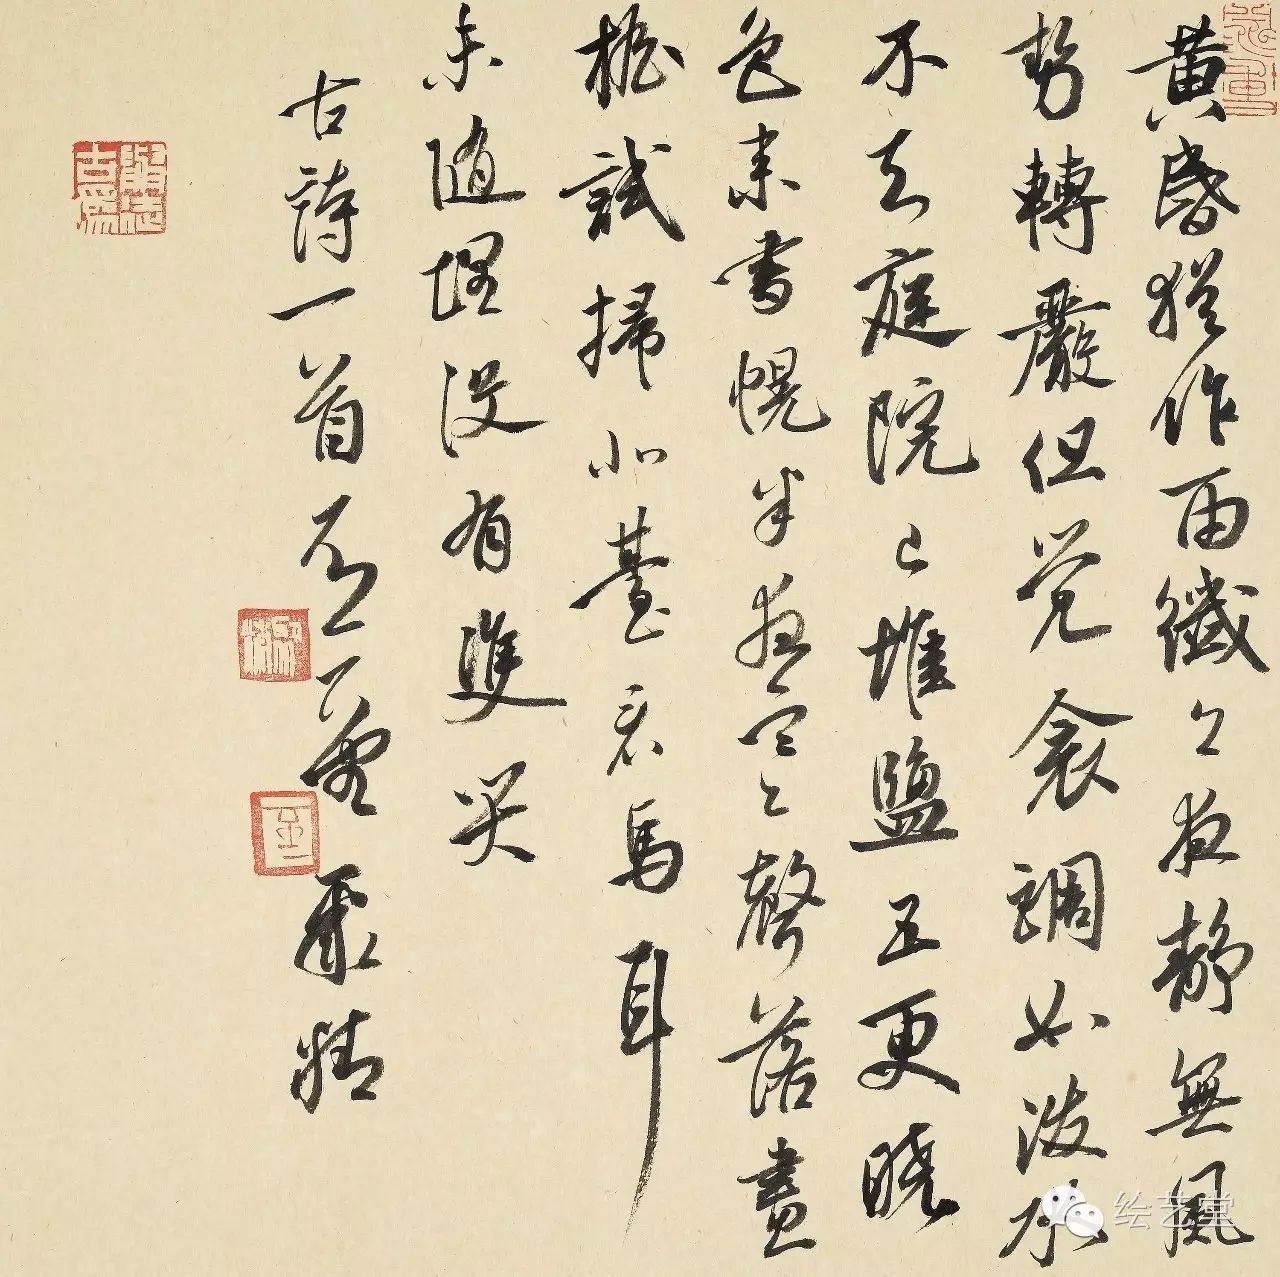 黄昏犹作雨纤々夜静無風
势轉嚴但觉衾裯如泼水
不知庭院已堆鹽五更曉
色来書幌半夜寒々聲落畫
檐試掃北臺看馬耳
未随埋没有雙尖
古詩一首
绘艺堂